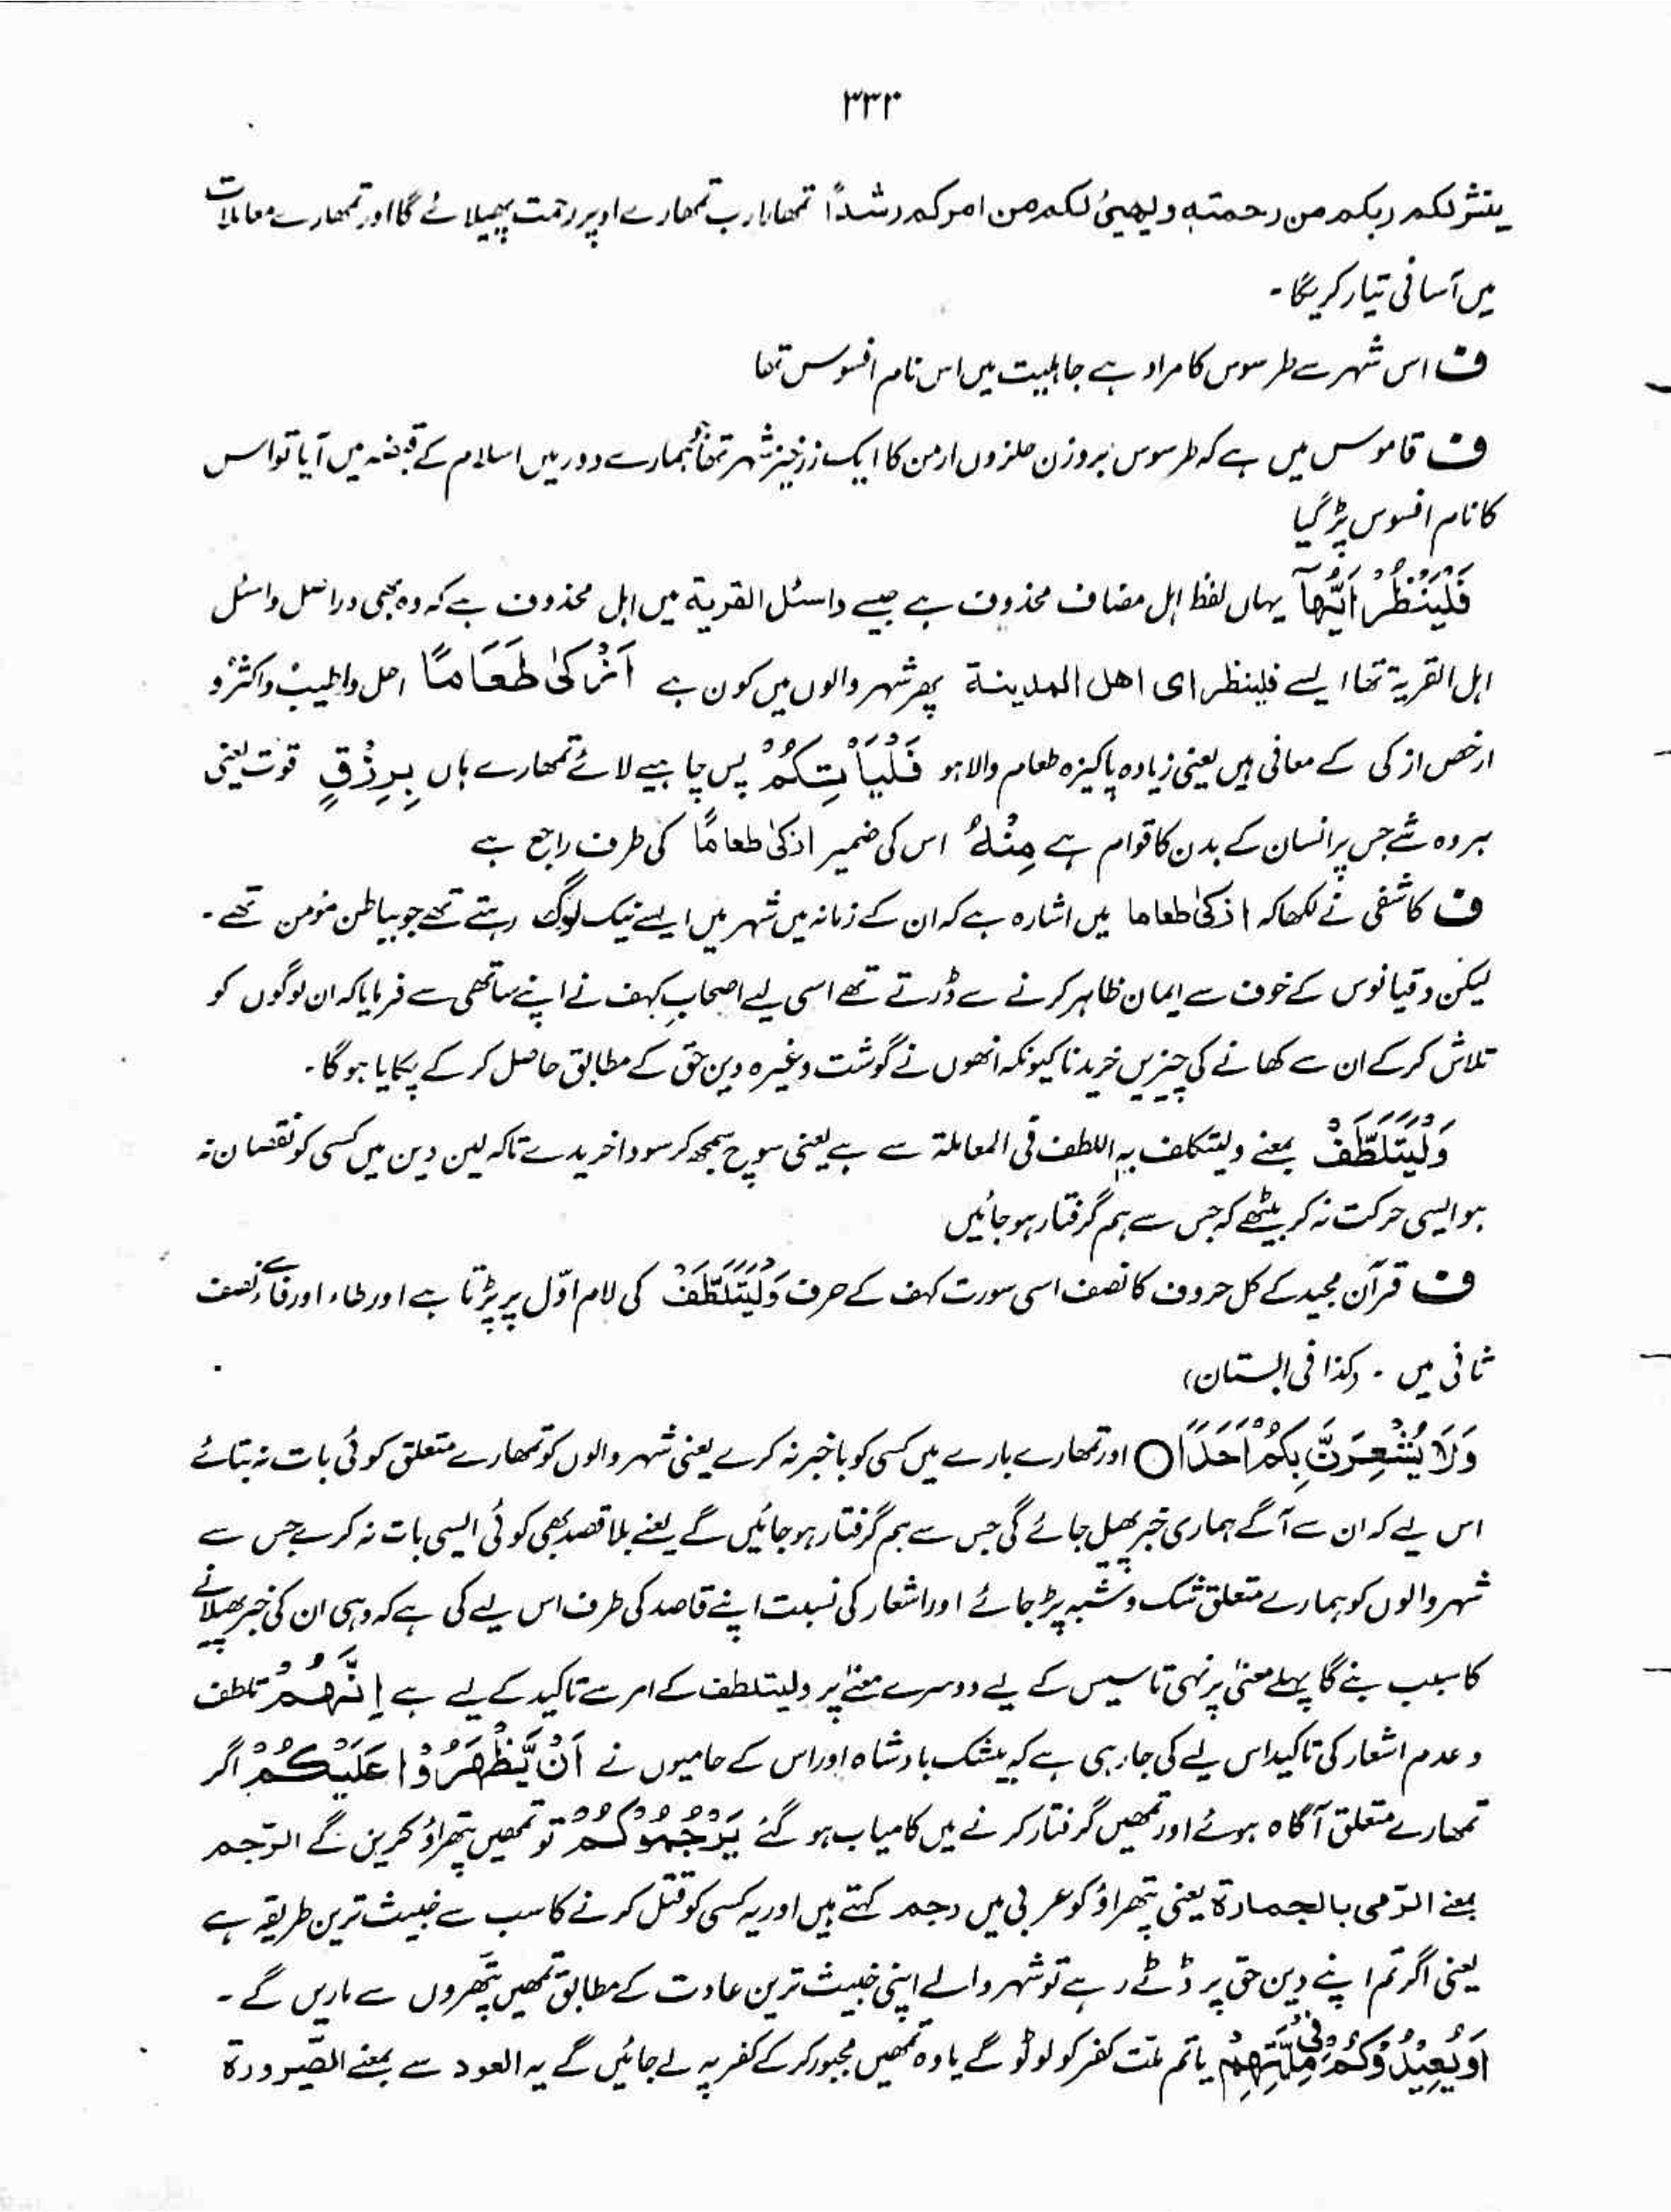 ۳۳۳
ینشر لکم ربکم من رحمتہ ویھیئ لکم من امرکم رشداً تمھارا رب تمھارے اوپر رحمت پھیلائے گا اور تمھارے معاملات
میں آسانی تیار کریگا۔
ف اس شہر سے طرسوس کا مراد ہے جاہلیت میں اس نام افسوس تھا
ف قاموس میں ہے کہ طرسوس بروزن حلزون ارمن کا ایک زرخیز شہر تھا ہمارے دور میں اسلام کے قبضہ میں آیا تو اس
کا نام افسوس پڑ گیا
فَلْیَنْظُرْ اَیُّھَآ یہاں لفظ اہل مضاف محذوف ہے جیسے واسئل القریۃ میں اہل محذوف ہے کہ وہ بھی دراصل واسئل
اہل القریۃ تھا ایسے فلینظر ای اھل المدینۃ پھر شہر والوں میں کون ہے اَزْکیٰ طَعَامًا احل واطیب واکثر و
ارخص ازکی کے معانی ہیں یعنی زیادہ پاکیزہ طعام والا ہو فَلْیَاْتِکُمْ پس چاہیے لائے تمھارے ہاں بِرِزْقٍ قوت یعنی
ہر وہ شے جس پر انسان کے بدن کا قوام ہے مِنْہُ اس کی ضمیر ازکیٰ طعامًا کی طرف راجع ہے
ف کاشفی نے لکھا کہ ازکیٰ طعاما میں اشارہ ہے کہ ان کے زمانہ میں شہر میں ایسے نیک لوگ رہتے تھے جو بباطن مؤمن تھے۔
لیکن دقیانوس کے خوف سے ایمان ظاہر کرنے سے ڈرتے تھے اسی لیے اصحابِ کہف نے اپنے ساتھی سے فرمایا کہ ان لوگوں کو
تلاش کرکے ان سے کھانے کی چیزیں خریدنا کیونکہ انھوں نے گوشت وغیرہ دین حق کے مطابق حاصل کر کے پکایا ہو گا۔
وَلْیَتَلَطَّفْ بمعنے ولیتکلف بہ اللطف فی المعاملۃ سے ہے یعنی سوچ سمجھ کر سودا خریدے تاکہ لین دین میں کسی کو نقصان نہ
ہو ایسی حرکت نہ کر بیٹھے کہ جس سے ہم گرفتار ہو جائیں
ف قرآن مجید کے کل حروف کا نصف اسی سورت کہف کے حرف وَلْیَتَلَطَّفْ کی لام اوّل پر پڑتا ہے اور طاء اور فاء نصف
ثانی میں ۔ (کذا فی البستان)
وَلَا یُشْعِرَنَّ بِکُمْ اَحَدًا○ اور تمھارے بارے میں کسی کو باخبر نہ کرے یعنی شہر والوں کو تمھارے متعلق کوئی بات نہ بتائے
اس لیے کہ ان سے آگے ہماری خبر پھیل جائے گی جس سے ہم گرفتار ہو جائیں گے یعنے بلا قصد بھی کوئی ایسی بات نہ کرے جس سے
شہر والوں کو ہمارے متعلق شک و شبہ پڑ جائے اور اشعار کی نسبت اپنے قاصد کی طرف اس لیے کی ہے کہ وہی ان کی خبر پھیلانے
کا سبب بنے گا پہلے معنیٰ پر نہی تاسیس کے لیے دوسرے معنےٰ پر ولیتلطف کے امر سے تاکید کے لیے ہے اِنَّھُمْ تلطف
و عدم اشعار کی تاکید اس لیے کی جا رہی ہے کہ بیشک بادشاہ اور اس کے حامیوں نے اَنْ یَّظْھَرُوْا عَلَیْکُمْ اگر
تمھارے متعلق آگاہ ہوئے اور تمھیں گرفتار کرنے میں کامیاب ہو گئے یَرْجُمُوْکُمْ تو تمھیں پتھراؤ کریں گے الرّجم
بمعنے الرّمی بالحجارۃ یعنی پتھراؤ کو عربی میں رجم کہتے ہیں اور یہ کسی کو قتل کرنے کا سب سے خبیث ترین طریقہ ہے
یعنی اگر تم اپنے دین حق پر ڈٹے رہے تو شہر والے اپنی خبیث ترین عادت کے مطابق تمھیں پتھروں سے ماریں گے۔
اَوْ یُعِیْدُوْکُمْ فِیْ مِلَّتِھِمْ یا تم ملت کفر کو لوٹو گے یا وہ تمھیں مجبور کرکے کفر پہ لے جائیں گے یہ العود سے بمعنے الصّیرورۃ